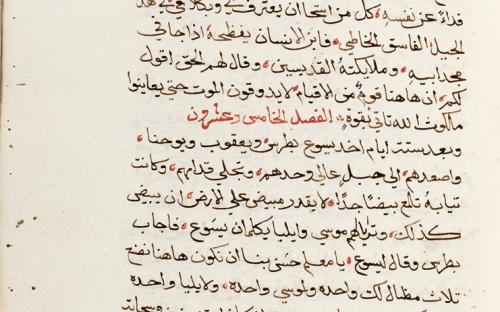 فداءً عن نفسه كل من استحا ان يعترف بي وبكلامي في هذا
الجيل الفاسق الخاطي فابن الانسان يفضحه اذا جا في
مجد ابيه وملايكته القديسين وقال لهم الحق اقول
لكم ان هاهنا قوم من الاقيام لا يدوقون الموت حتي يعاينوا
ملكوت الله تاتي بقوه الفصل الخامس وعشرون
وبعد ستت ايام اخد يسوع بطرس ويعقوب ويوحنا
واصعدهم الي جبل عالي وحدهم وتجلي قدامهم وكانت
تيابه تلمع بيضا جدا لا يقدر مبيض علي الارض ان يبيض
كذلك وتراياهم موسي وايليا يكلمان يسوع فاجاب
بطرس وقال ليسوع يا معلم حسن بنا ان نكون هاهنا نصنع
تلات مظال لك واحده ولموسي واحده ولايليا واحده